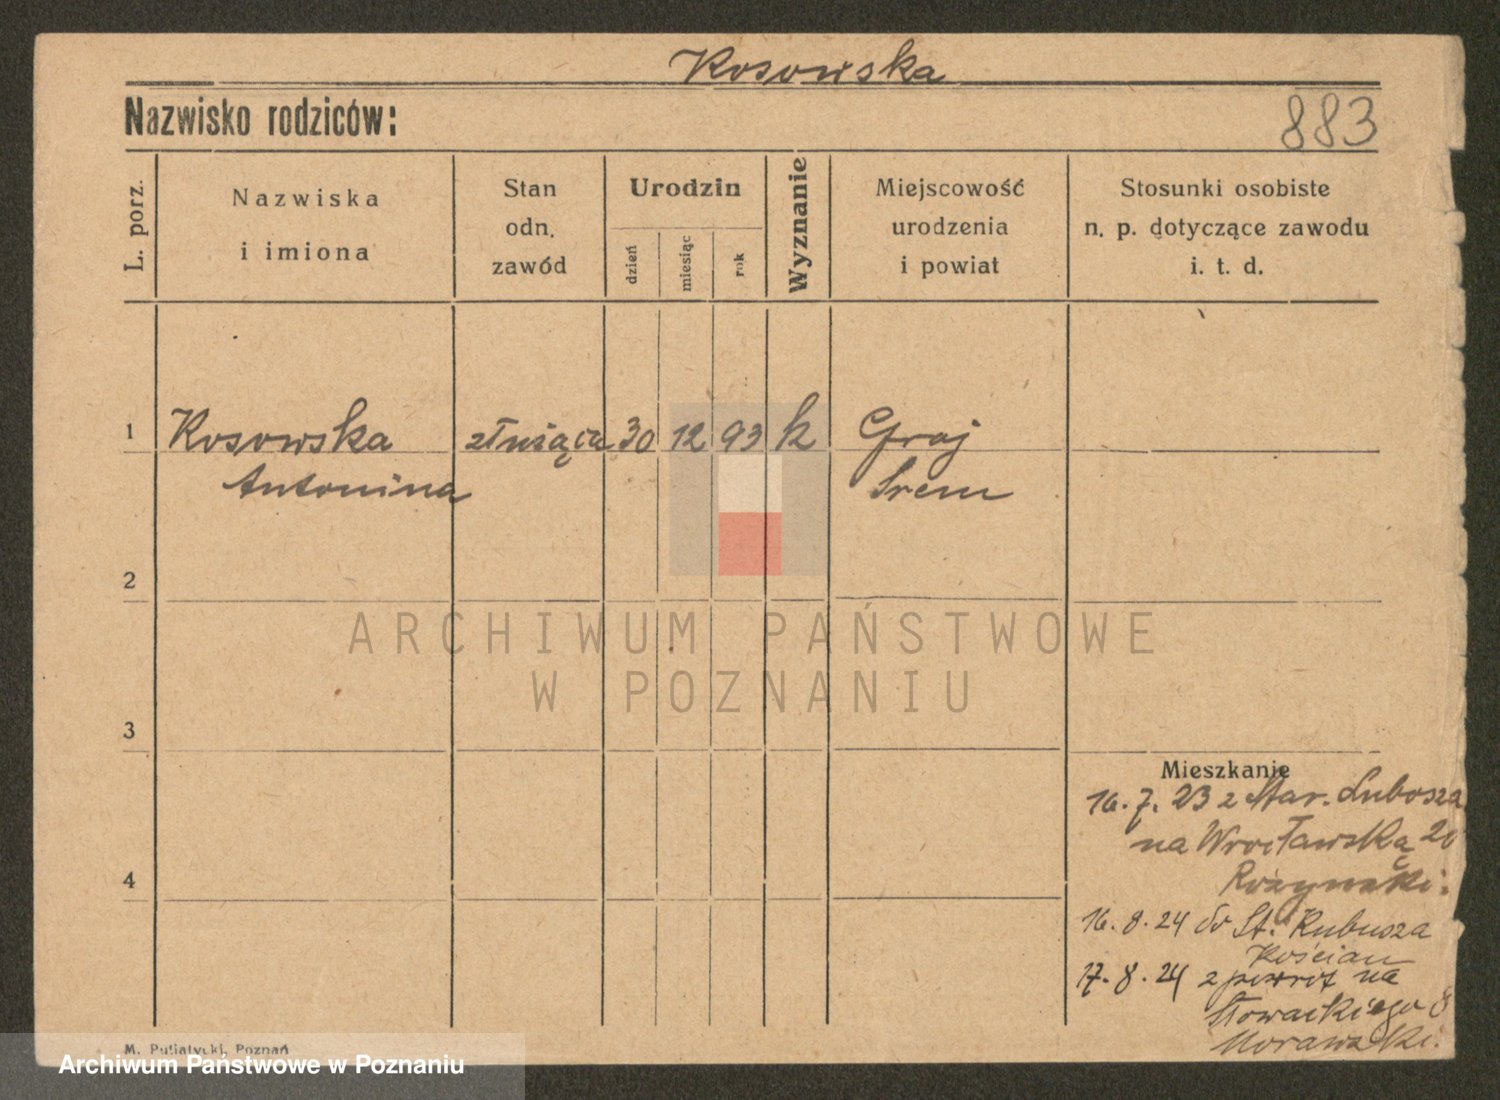 Kosowska
Nazwisko rodziców:
883
L. porz.
Nazwiska
i imiona
Stan
odn.
zawód
Urodzin
dzień
miesiąc
rok
Wyznanie
Miejscowość
urodzenia
i powiat
Stosunki osobiste
n. p. dotyczące zawodu
i. t. d.
1 Kosowska służąca 30 12 93 k Graj
Antonina Śrem
2
ARCHIWUM PAŃSTWOWE
W POZNANIU
3
Mieszkanie
16. 7. 23 z Star. Lubosza
na Wrocławską 20
4
Rożynski.
16. 8. 24 do St. Lubosza
Kościan
17. 8. 24 z powrot na
Słowackiego 8
Morawski.
M. Putiatycki, Poznań
Archiwum Państwowe w Poznaniu